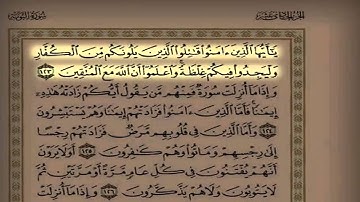 سورة التوبة
الجزء الحادي عشر
يَٰٓأَيُّهَا ٱلَّذِينَ ءَامَنُوا۟ قَٰتِلُوا۟ ٱلَّذِينَ يَلُونَكُم مِّنَ ٱلْكُفَّارِ
وَلْيَجِدُوا۟ فِيكُمْ غِلْظَةً وَٱعْلَمُوٓا۟ أَنَّ ٱللَّهَ مَعَ ٱلْمُتَّقِينَ ١٢٣
وَإِذَا مَآ أُنزِلَتْ سُورَةٌ فَمِنْهُم مَّن يَقُولُ أَيُّكُمْ زَادَتْهُ هَٰذِهِۦٓ
إِيمَٰنًا فَأَمَّا ٱلَّذِينَ ءَامَنُوا۟ فَزَادَتْهُمْ إِيمَٰنًا وَهُمْ يَسْتَبْشِرُونَ
١٢٤ وَأَمَّا ٱلَّذِينَ فِى قُلُوبِهِم مَّرَضٌ فَزَادَتْهُمْ رِجْسًا
إِلَىٰ رِجْسِهِمْ وَمَاتُوا۟ وَهُمْ كَٰفِرُونَ ١٢٥ أَوَلَا يَرَوْنَ
أَنَّهُمْ يُفْتَنُونَ فِى كُلِّ عَامٍ مَّرَّةً أَوْ مَرَّتَيْنِ ثُمَّ
لَا يَتُوبُونَ وَلَا هُمْ يَذَّكَّرُونَ ١٢٦ وَإِذَا مَآ أُنزِلَتْ